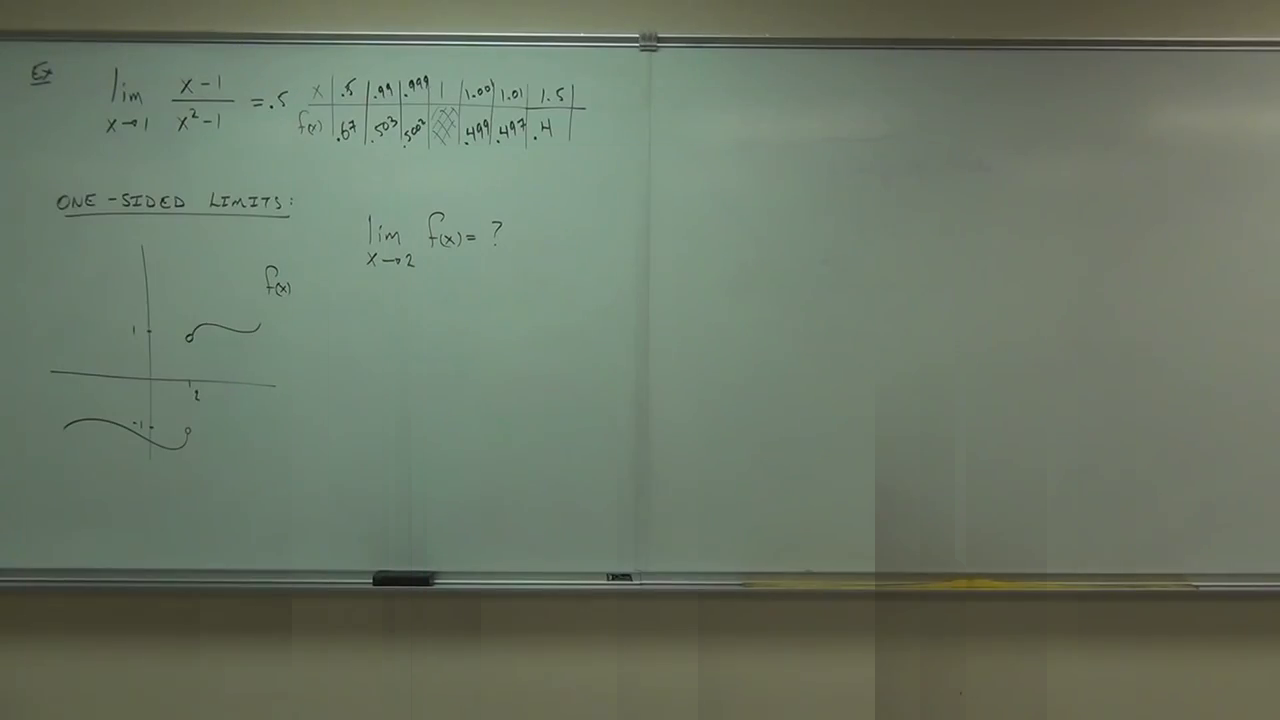 Ex lim x→1 x-1 / x²-1 = .5
x | .5 | .99 | .999 | 1 | 1.001 | 1.01 | 1.5 |
f(x) | .67 | .503 | .5003 | | .499 | .497 | .4 |
ONE-SIDED LIMITS:
lim x→2 f(x) = ?
f(x)
1
2
-1